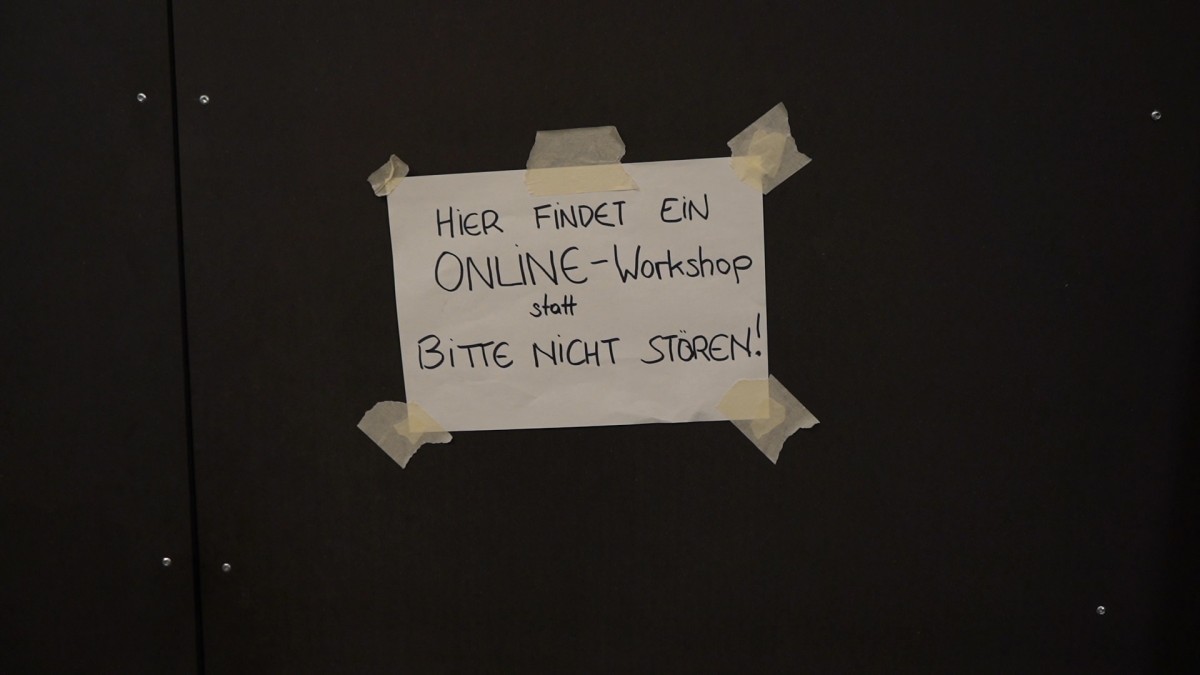 HIER FINDET EIN
ONLINE-Workshop
statt
BITTE NICHT STÖREN!